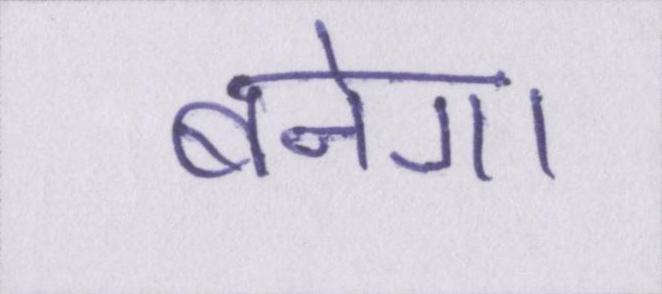 बनेगा।